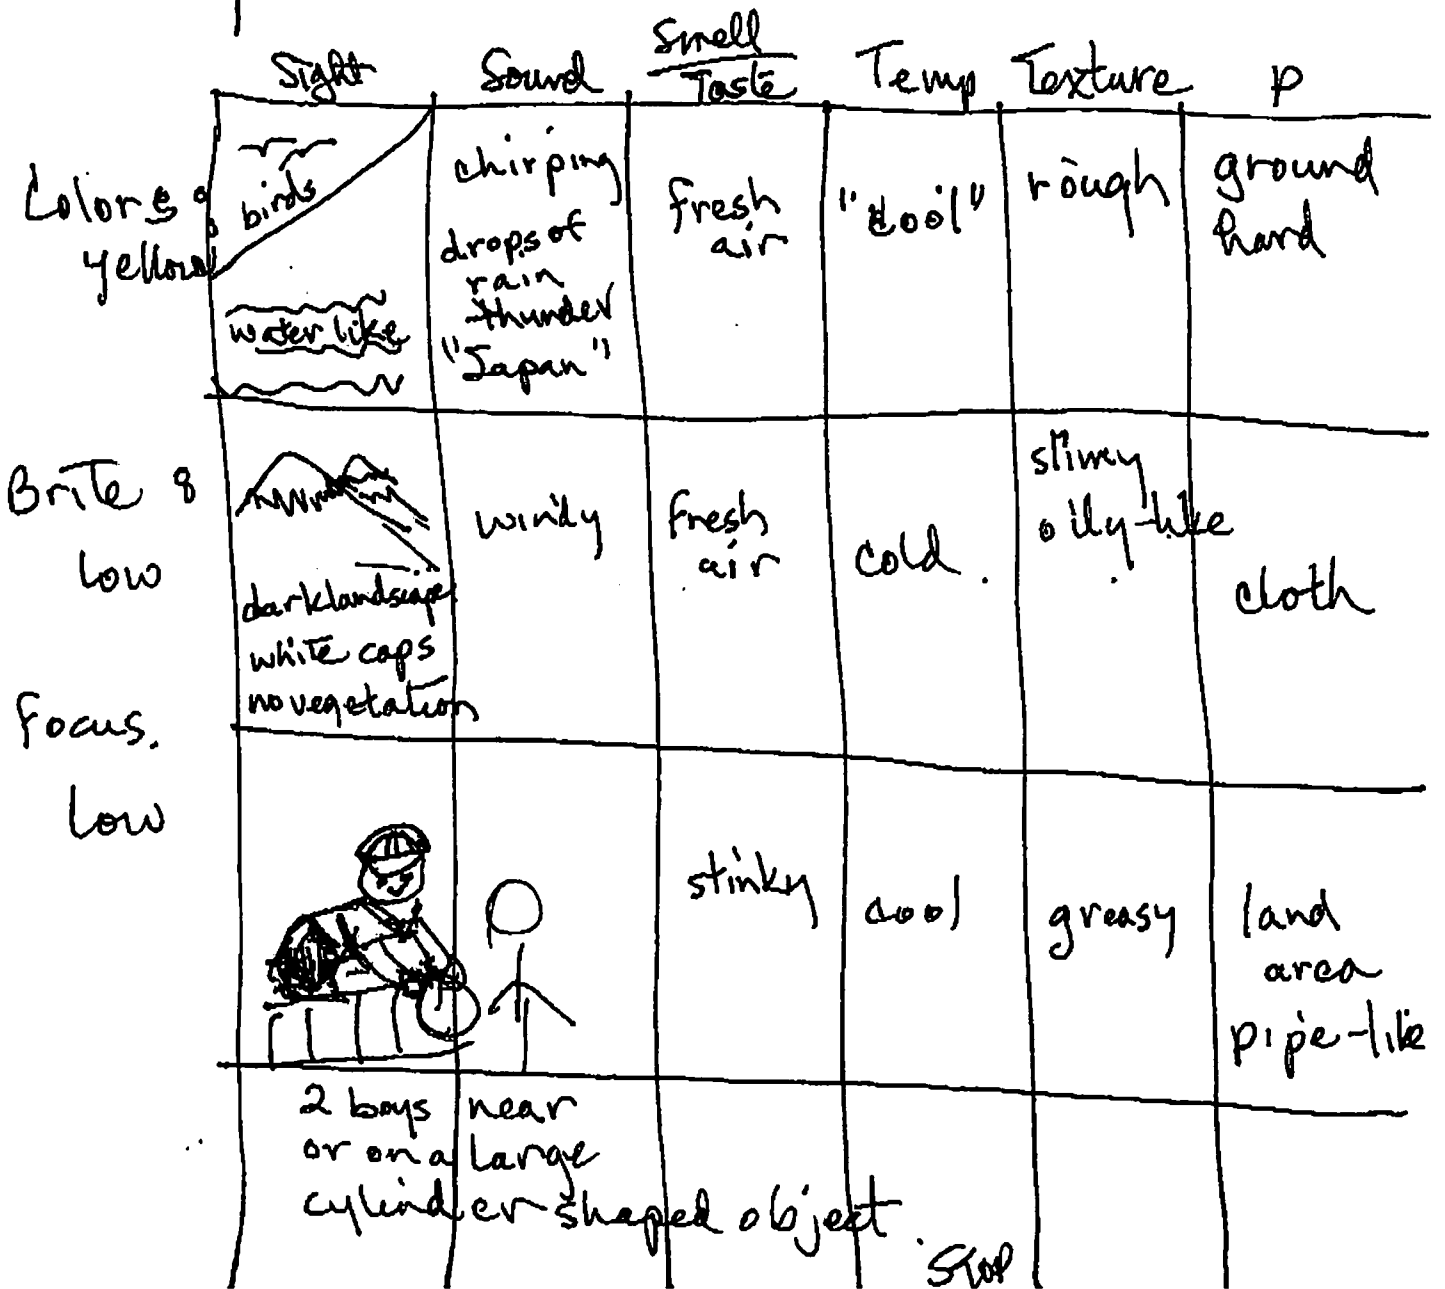 Sight Sound Smell Temp Texture P
Taste
Colors:
yellow
birds
water like
chirping
drops of
rain
thunder
"Japan"
fresh
air
"cool"
rough
ground
hard
Brite 8
low
dark landscape
white caps
no vegetation
windy
fresh
air
cold
slimy
oily-like
cloth
Focus.
low
stinky
cool
greasy
land
area
pipe-like
2 boys near
or on a large
cylinder shaped object
STOP